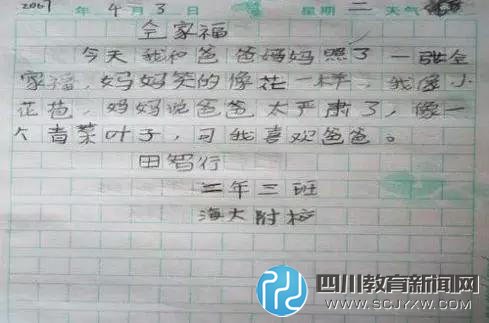 2007年4月3日 星期二 天气
全家福
今天我和爸爸妈妈照了一张全
家福，妈妈笑的像花一样，我像小
花苞，妈妈说爸爸太严肃了，像一
个青菜叶子，可我喜欢爸爸。
田智行
二年三班
海大附校
四川教育新闻网
WWW.SCJYXW.COM